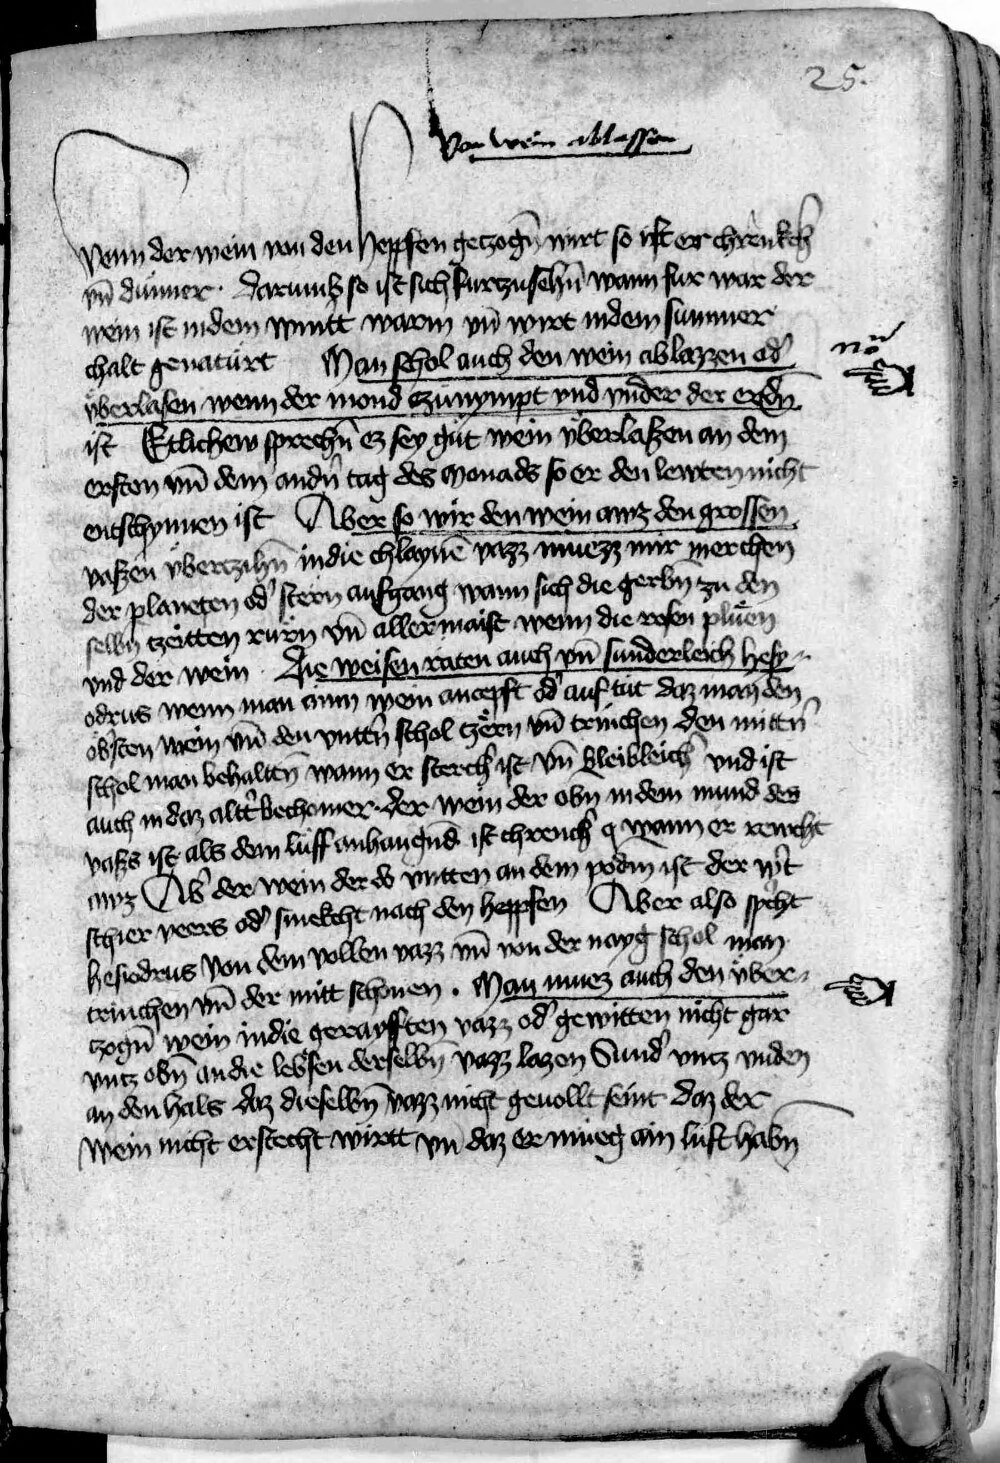 25.
Von wein ablassen
Wenn der wein von den heppfen getzogn̄ wirt so ist er chrenkch̄
vn̄ dünner · darumb so ist sich furczusehn̄ wann fur war der
wein ist indem wintt warm vn̄ wirt indem summer
chalt genatürt Man schol auch den wein ablazzen od'
no
überlasen wenn der mond czünympt vnd vnder der erdn̄
ist Etlichew sprechn̄ ez sey güt wein überlaßen an dem
ersten vn̄ dem andn̄ tag des monads so er den lewten nicht
entschynnen ist Aber so wir den wein awz den grossen
vaßen überczihn̄ in die chlaynē vazz muezz mir merchen
der planeten od' stern aufgang wann sich die gerbn̄ zu den
selbn̄ tzeitten rürn vn̄ aller maist wenn die rosen plüen
vnd der wein · die weisen raten auch vn̄ sunderleich hesy-
odrus wenn man ainn wein anczepft od' auf tüt daz man den
öbr̄sten wein vn̄ den vnttn̄ schol tzern vn̄ trinchen den mittn̄
schol man behaltn̄ wann er sterch' ist vn̄ bleibleich' vnd ist
auch in daz altt' bechomer · der wein der obn̄ in dem mund des
vaßs ist als dem luff anhangūd ist chrench' q wann er rewcht
awz Ab' der wein der do vntten an dem podm ist der w't
schier veers od' smekcht nach den heppfen Aber also sp'cht
hesiodrus von dem vollen vazz vn̄ von der nayg schol man
trinchen vn̄ der mitt schonen · Man muez auch den über-
czogn̄ wein in die gerayfften vazz od' gewitten nicht gar
vntz obn̄ an die lebsen derselbn̄ vazz lazen Sund' vntz vnden
an den hals daz dieselbn̄ vazz nicht gevollt seint daz der
wein nicht ersteckt württ vn̄ daz er mueg ain luft habn̄